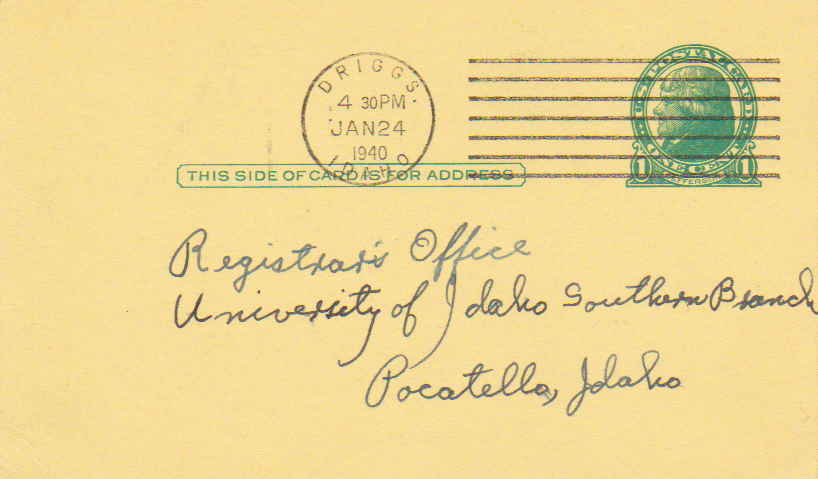 DRIGGS.
4 30PM
JAN 24
1940
IDAHO
U.S. POSTAL CARD
ONE CENT
JEFFERSON
THIS SIDE OF CARD IS FOR ADDRESS
Registrar's Office
University of Idaho Southern Branch
Pocatello, Idaho